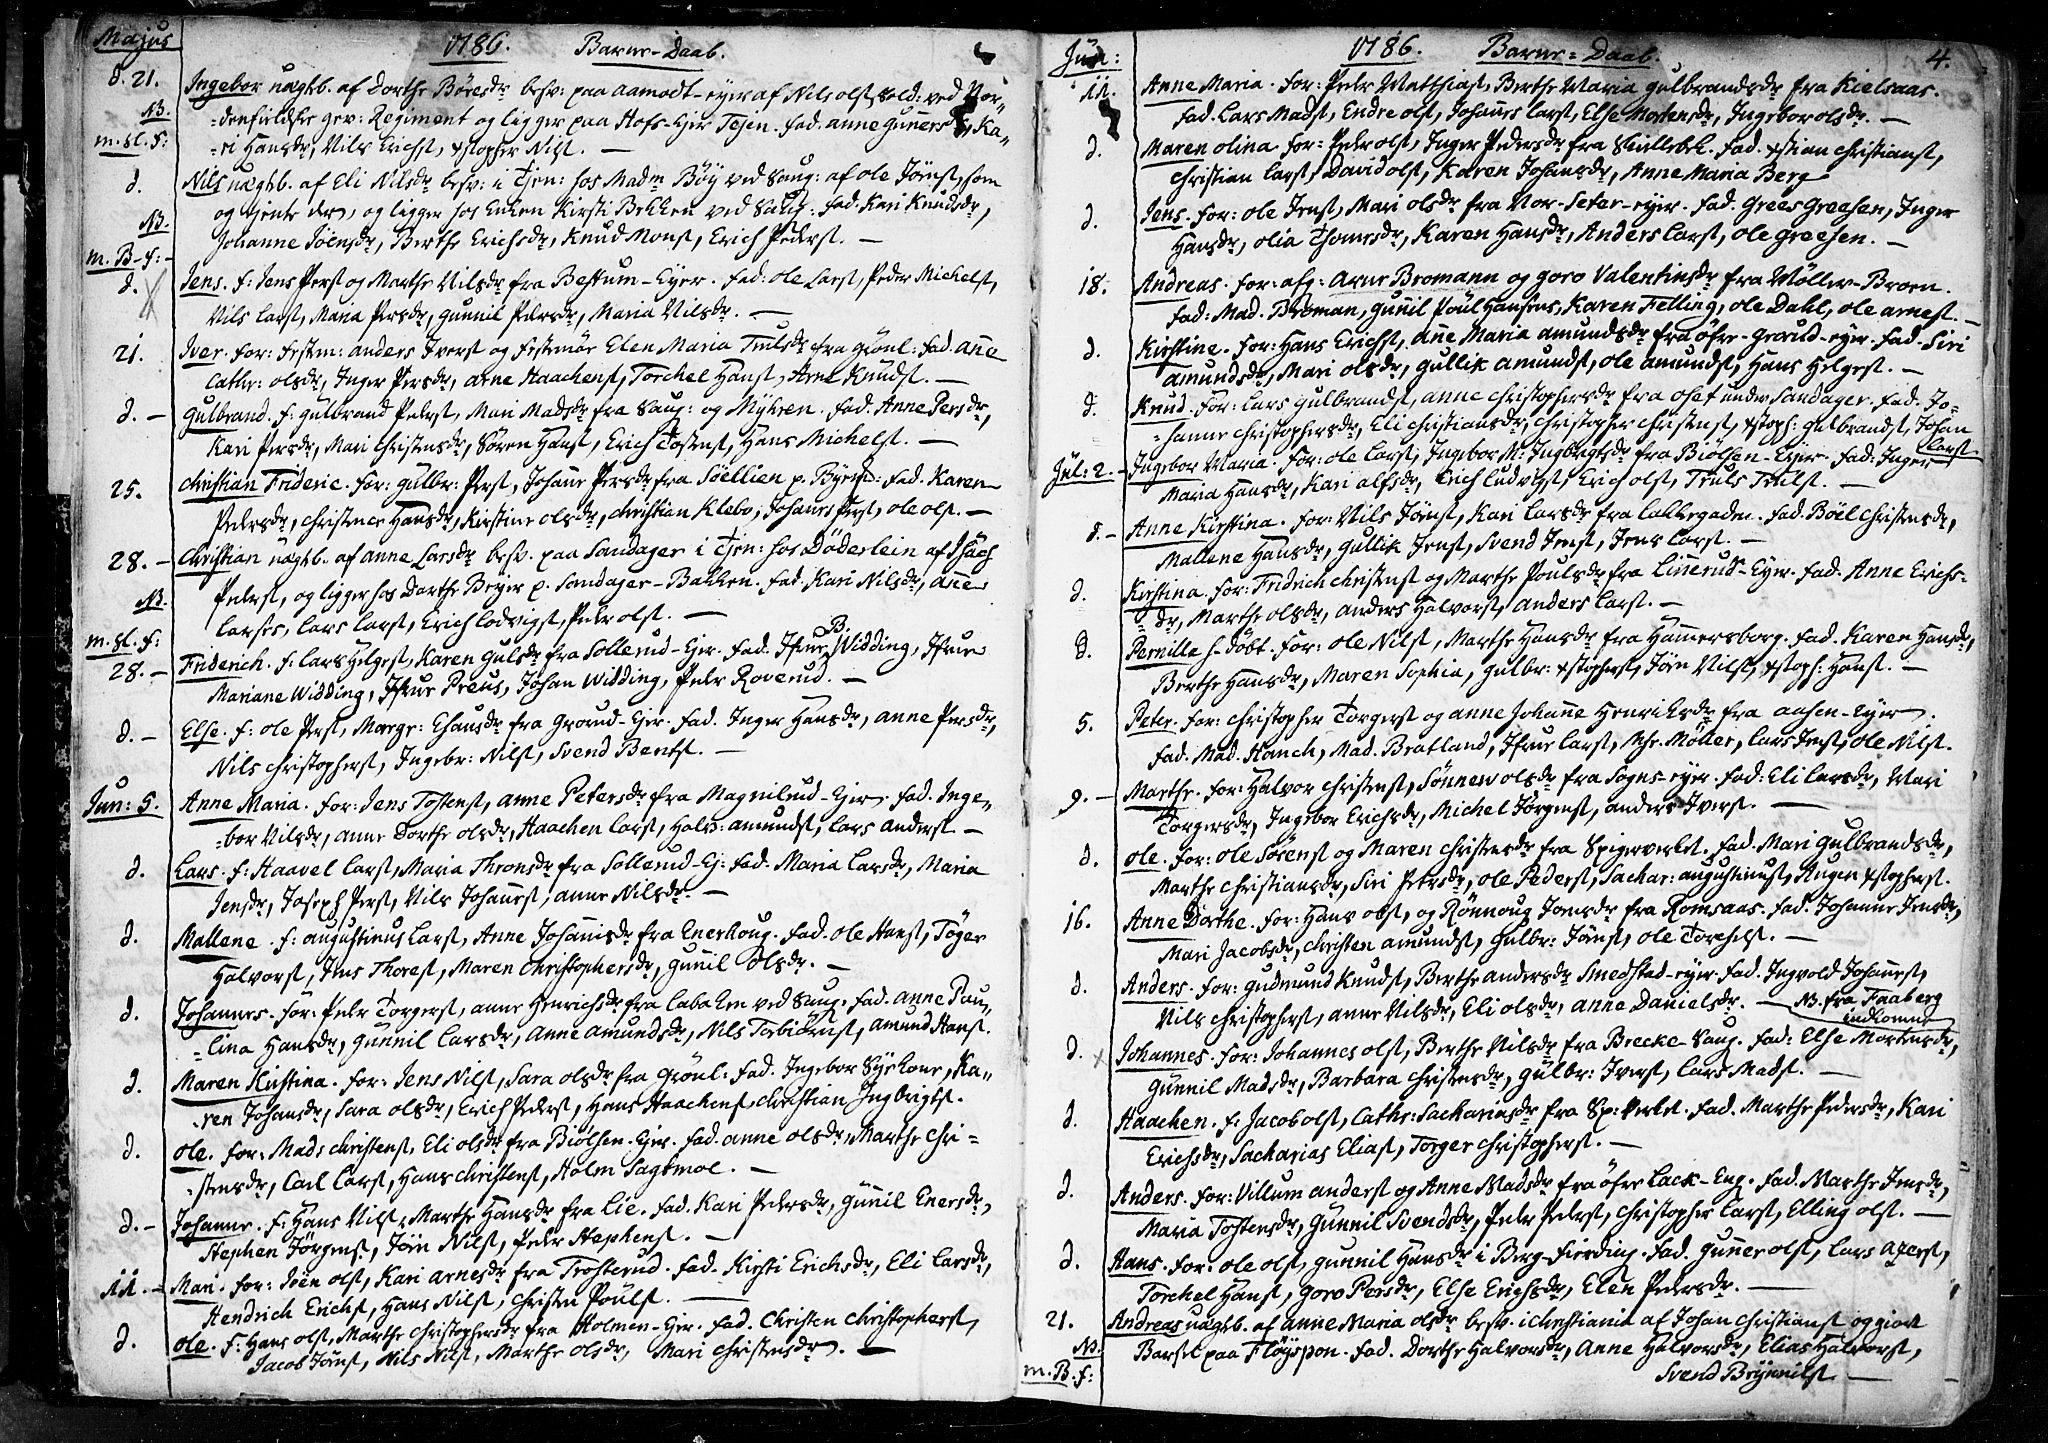 Majus
1786. Barne-Daab.
d. 21. Ingebor uægtb. af Dorthe Böresdr besv: paa Aamodt-eyer af Nils olsr Sold: ved Nor-
NB. =denfieldske gev: Regiment og ligger paa Hofs-Ejer Tejen. fad. anne Guners dr, Ka-
m. sl. f: =ri Hansdr, Nils Erichsr, xstopher Nilsr. —
d. Nils uægtb. af Eli Nilsdr besv: i Tjen: hos Madm Böy ved Saug: af ole Jönsr, som
og tjente der, og ligger hos Enken Kirsti Bekken ved Saug: fad. Kari Knudsdr,
NB. Johanne Jöensdr, Berthe Erichsdr, Knud Monsr, Erich Pedersr. —
m. B. f:-
d. Jens. f: Jens Persr og Marthe Nilsdr fra Bestum-Eyer. fad: ole Larsr, Peder Michelsr,
Nils Larsr, Maria Persdr, Gunnil Pedersdr, Maria Nilsdr. —
21. Iver. for: festem: anders Iversr og festemöe Elen Maria Trulsdr fra Grönl: fad. Ane
Cathr: olsdr, Inger Persdr, arne Haachensr, Torchel Hansr, Arne Knudsr. —
d. — Gulbrand. f: Gulbrand Pedersr, Mari Madsdr fra Saug: og Myhren. fad. Anne Persdr,
Kari Persdr, Mari Christensdr, Sören Hansr, Erich Tostensr, Hans Michelsr. —
25. Christian Frideric. for: Gulbr: Persr, Johane Persdr fra Söellien p. Byens: fad. Karen
Pedersdr, Christence Hansdr, Kirstine olsdr, Christian Klebo, Johanes Persr, ole olsr. —
28. — Christian uægtb. af anne Larsdr besv. paa Sandager i Tjen: hos Döderlein af Isach
Pedersr, og ligger hos Dorthe Beyer p. Sandager-Bakken. fad. Kari Nilsdr, ane
NB. Larses, Lars Larsr, Erich Lodvigsr, Peder olsr. —
m. sl. f:
28. — Friderich. f: Lars Helgesr, Karen Gulsdr fra Sollerud-Ejer. fad. Jfrue B. Widding, Jfrue
Mariane Widding, Jfrue Preus, Johan Widding, Peder Roverud. —
d. — Else. f: ole Persr, Margr: Chansdr fra Grorud-Ejer. fad. Inger Hansdr, anne Persdr,
Nils Christophersr, Ingebr: Nilsr, Svend Bentsr. —
Jun: 5. Anne Maria. for: Jens Tostensr, anne Petersdr fra Magnilrud-Ejer. fad. Inge-
=bor Nilsdr, anne Dorthe olsdr, Haachen Larsr, Halv: amundsr, Lars andersr. —
d. Lars. f: Haavel Larsr, Maria Thronsdr fra Sollerud-Ej: fad. Maria Larsdr, Maria
Jensdr, Joseph Persr, Nils Johanesr, anne Nilsdr. —
d. Mallene. f: augustinus Larsr, Anne Johanisdr fra Enerhoug. fad. ole Hansr, Töger
Halvorsr, Jens Thoresr, Maren Christophersdr, Gunil olsdr. —
d. Johannes. for: Peder Torgersr, anne Henrichsdr fra Labakken ved Saug. fad. anne Pau-
=lina Hansdr, Gunnil Larsdr, Anne amundsdr, Nils Torbiörnsr, amund Hansr.
d. Maren Kirstina. for: Jens Nilsr, Sara olsdr fra Grönl. fad. Ingebor Syekone, Ka-
=ren Johansdr, Sara olsdr, Erich Pedersr, Hans Haachensr, Christian Ingbrigtsr.
d. ole. for: Mads Christensr, Eli olsdr fra Biölsen-Ejer. fad. anne olsdr, Marthe Chri-
=stensdr, Carl Larsr, Hans Christensr, Holm Sagtmol. —
d. — Johanne. f: Hans Nilsr, Marthe Hansdr fra Lie. fad. Kari Pedersdr, Gunil Enersdr,
Stephen Jörgensr, Jön Nilsr, Peder Stephensr. —
11. — Mari. for: Jöen olsr, Kari arnesdr fra Trosterud. fad. Kirsti Erichsdr, Eli Larsdr,
Hendrich Erichsr, Hans Nilsr, Christen Poulsr. —
d. ole. f: Hans olsr, Marthe Christophersdr fra Holmen-Ejer. fad. Christen Christophersr,
Jacob Jönsr, Nils Nilsr, Marthe olsdr, Mari Christensdr. —
Jun:
1786. Barne=Daab. 4.
11. Anne Maria. for: Peder Matthiasr, Berthe Maria Gulbrandsdr fra Kielsaas.
fad. Lars Madsr, Endre olsr, Johanes Larsr, Else Mortensdr, Ingebor olsdr. —
d. Maren olina. for: Peder olsr, Inger Pedersdr fra Skillebek. fad. xstian Christiansr,
Christian Larsr, David olsr, Karen Johansdr, Anne Maria Berg
d. Jens. for: ole Jensr, Mari olsdr fra Vor-Seter-eyer. fad. Grees Greesen, Inger
Hansdr, olia Thomesdr, Karen Hansdr, Anders Larsr, ole Greesen. —
18. Andreas. for: afg: Arne Bromann og Goro Valentinsdr fra Möller-Broen.
fad: Mad. Broman, Gunil Poul Hansens, Karen Felling, ole Dahl, ole arnesr. —
d. Kirstine. for: Hans Erichsr, Ane Maria amundsdr fra öfre-Grorud-eyer. fad. Siri
amundsdr, Mari olsdr, Gullik amundsr, ole amundsr, Hans Helgesr. —
d. Knud. for: Lars Gulbrandsr, anne Christophersdr fra oset under Sandager. fad. Jo-
=hanne Christophersdr, Eli Christiansdr, Christopher Christensr, xstoph: Gulbrandsr, Johan
Larsr
Jul: 2. — Ingebor Maria. for: ole Larsr, Ingebor M: Ingbrigtsdr fra Biölsen-Eyer. fad: Inger
Maria Hansdr, Kari alfsdr, Erich Ludvigsr, Erich olsr, Truls Trulsr. —
d. — Anne Kirstina. for: Nils Jönsr, Kari Larsdr fra Lakkegaden. fad. Böel Christensdr,
Mallene Hansdr, Gullik Jensr, Svend Jensr, Jens Larsr. —
d. Kirstina. for: Fridrich Christensr og Marthe Poulsdr fra Linnerud-Eyer. fad. Anne Erichs-
=dr, Marthe olsdr, anders Halvorsr, anders Larsr. —
d. Pernille h-döbt. for: ole Nilsr, Marthe Hansdr fra Hamersborg. fad. Karen Hansdr,
Berthe Hansdr, Maren Sophia, Gulbr: xstophersr, Jörn Nilsr, xstoph: Hansr. —
5. Peter. for: Christopher Torgersr og anne Johanne Henrichsdr fra aasen-Eyer.
fad. Mad. Hanch, Mad. Bratland, Jfrue Larsr, Mhr. Möller, Lars Jensr, ole Nilsr.
9. — Marthe. for: Halvor Christensr, Sönnev olsdr fra Sogns-eyer. fad: Eli Larsdr, Mari
Torgersdr, Ingebor Erichsdr, Michel Jörgensr, anders Iversr. —
d. ole. for: ole Sörensr og Maren Christensdr fra Spigerverket. fad. Mari Gulbrandsdr,
Marthe Christiansdr, Siri Petersdr, ole Pedersr, Sachar: augustinusr, Augen xstophersr.
16. Anne Dorthe. for: Hans olsr, og Rönnoug Joensdr fra Romsaas. fad. Johanne Jensdr,
Mari Jacobsdr, Christen amundsr, Gulbr: Jönsr, ole Torchelsr. —
d. Anders. for: Gudmund Knudsr, Berthe andersdr Smedstad-eyer. fad. Ingvold Johanesr,
Nils Christophersr, anne Nilsdr, Eli olsdr, anne Danielsdr. — NB. fra Faaberg
indkomne
d. x Johannes. for: Johannes olsr, Berthe Nilsdr fra Brecke-Saug. fad: Else Mortensdr,
Gunnil Madsdr, Barbara Christensdr, Gulbr: Iversr, Lars Madsr. —
d. Haachen. f: Jacob olsr, Cathr: Sachariasdr fra Sp: verket. fad. Marthe Pedersdr, Kari
Erichsdr, Sacharias Eliasr, Torger Christophersr. —
d. Anders. for: Villum andersr og Anne Madsdr fra öfre Lack-Eng. fad. Marthe Jensdr,
Maria Tostensdr, Gunnil Svendsdr, Peder Pedersr, Christopher Larsr, Elling olsr. —
d. Hans. for: ole olsr, Gunnil Hansdr i Berg-Fierding. fad. Gunner olsr, Lars apersr,
Torchel Hansr, Goro Persdr, Else Erichsdr, Elen Pedersdr. —
21. Andreas uægtb. af anne Maria olsdr besv. i Christiania af Johan Christiansr og giort
N. Barsel paa Flöyspon. fad. Dorthe Halvorsdr, Anne Halvorsdr, Elias Halvorsr,
m. B. f: Svend Brynnilsr —